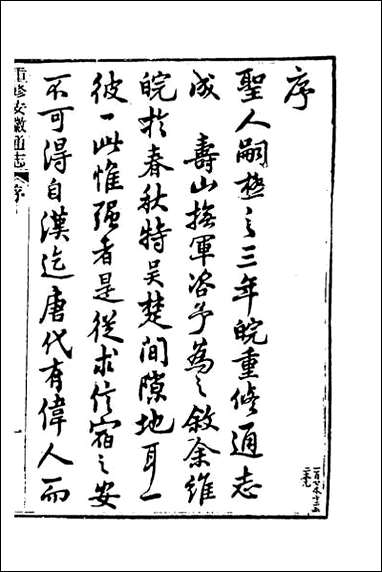 序
聖人嗣極之三年皖重修通志
成 壽山撫軍咨予為之敘余維
皖於春秋特吳楚間隙地耳一
彼一此惟强者是從求信宿之安
不可得自漢迄唐代有偉人而
重修安徽通志 序